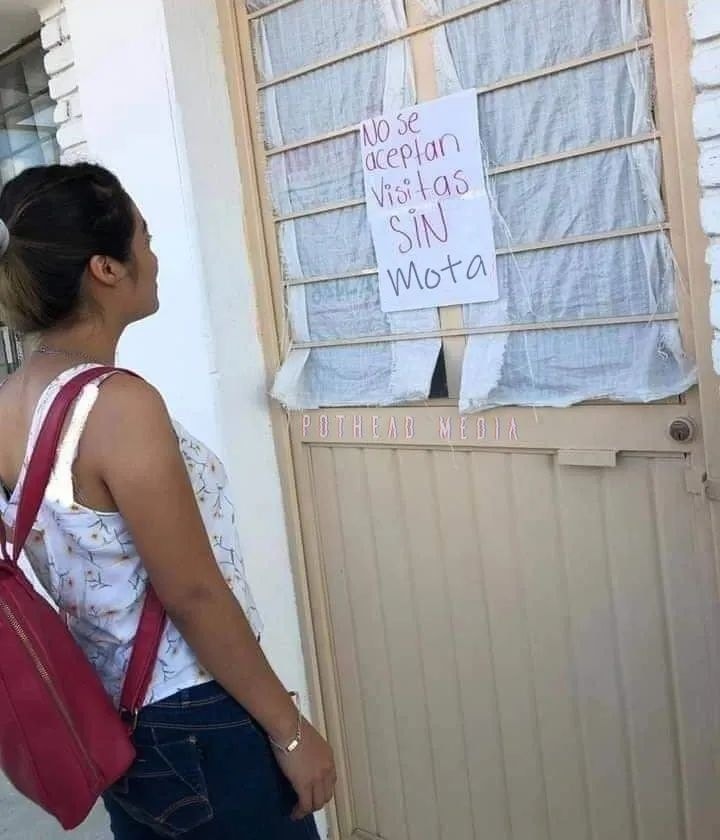 No se
aceptan
Visitas
SIN
Mota
POTHEAD MEDIA